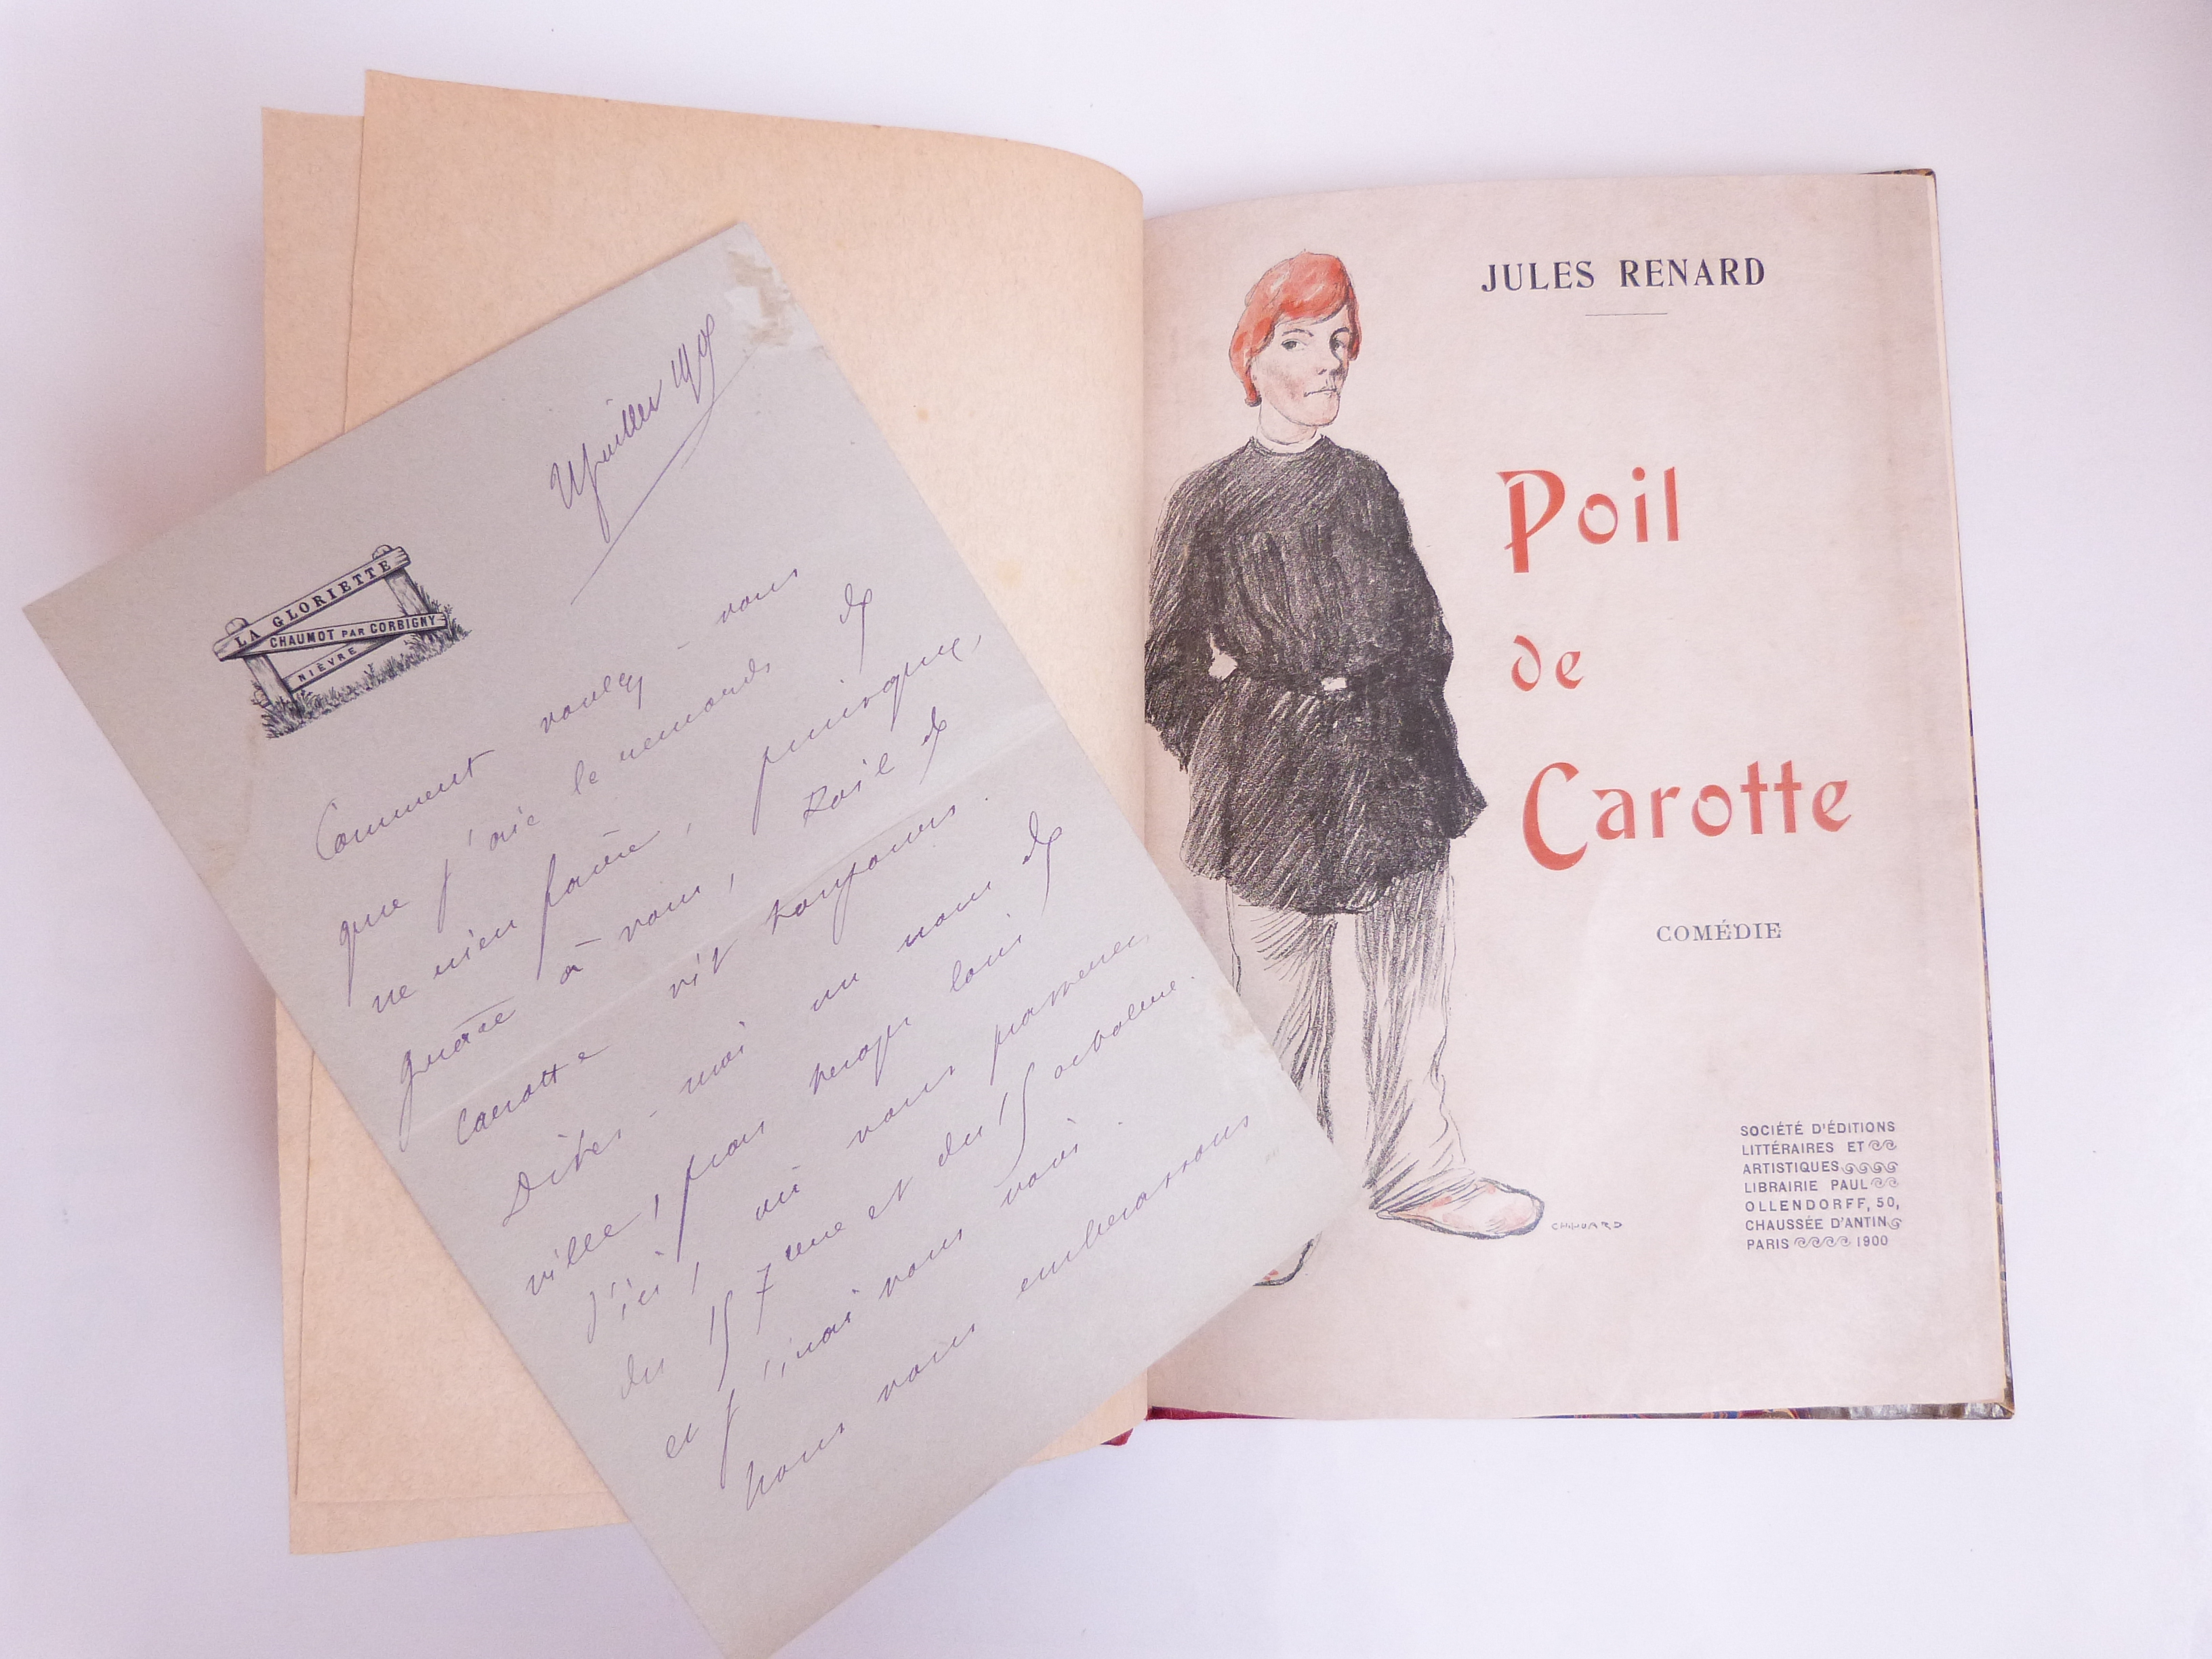 juillet
LA GLORIETTE
CHAUMOT PAR CORBIGNY
NIÈVRE
Comment voulez-vous
que j'aie le remords de
ne rien faire, puisque,
grâce à vous, Poil de
Carotte vit toujours.
Dites-moi un nom de
ville ! pas trop loin
d'ici ! où vous
du 15 7bre et du 15 octobre.
et j'irai vous voir.
Nous vous embrassons
JULES RENARD
Poil
de
Carotte
COMÉDIE
SOCIÉTÉ D'ÉDITIONS
LITTÉRAIRES ET
ARTISTIQUES
LIBRAIRIE PAUL
OLLENDORFF, 50,
CHAUSSÉE D'ANTIN
PARIS 1900